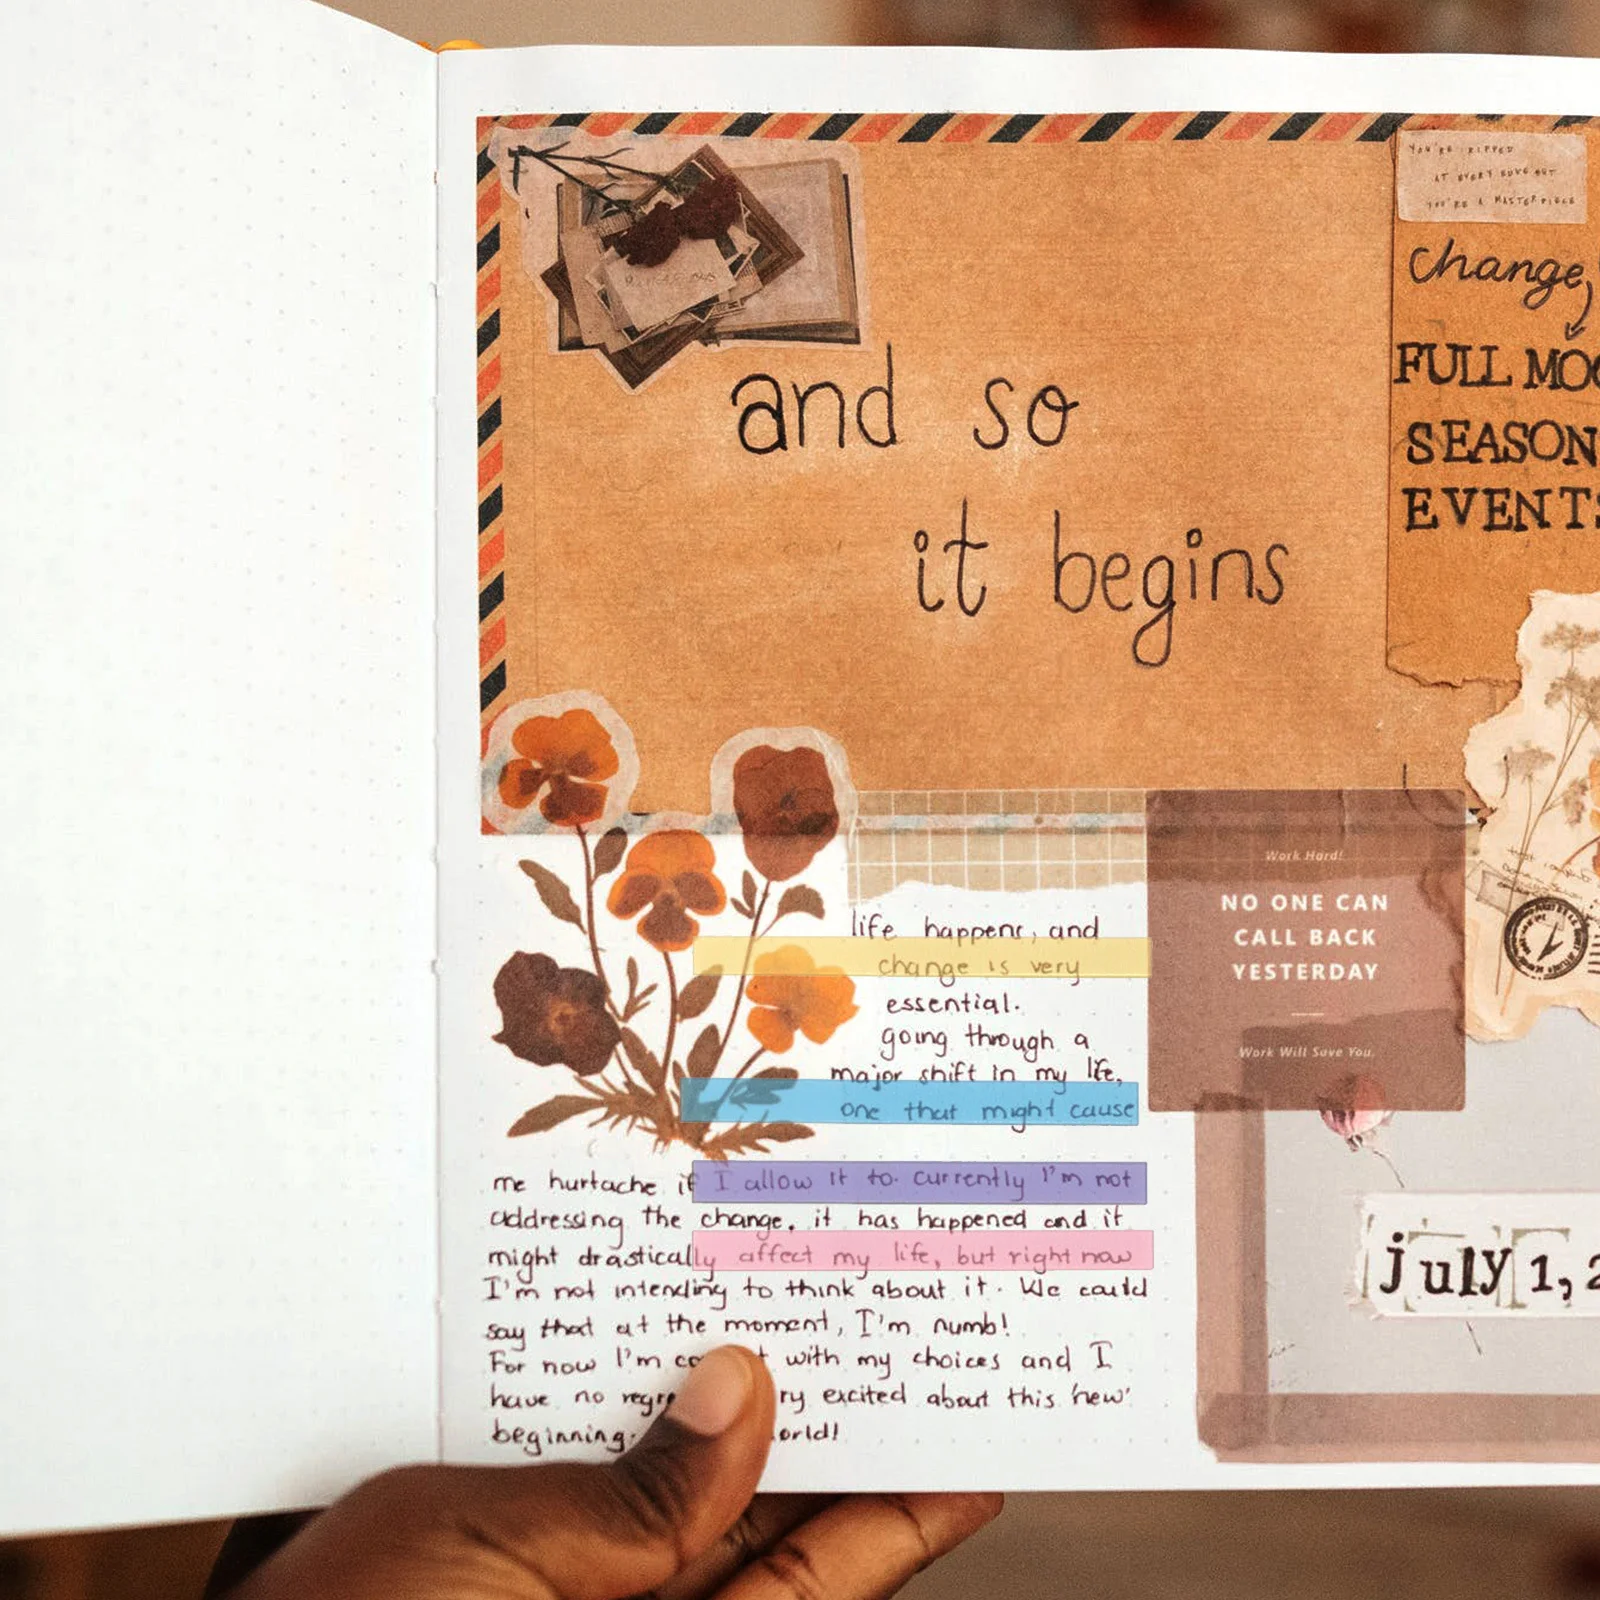 and so
it begins
YOU'RE RIPPED
AT EVERY EDGE BUT
YOU'RE A MASTERPIECE
change,
FULL MOO
SEASON
EVENTS
life happens, and
change is very
essential.
going through a
major shift in my life,
one that might cause
me hurtache if I allow it to. currently I'm not
addressing the change, it has happened and it
might drastically affect my life, but right now
I'm not intending to think about it. We could
say that at the moment, I'm numb!
For now I'm co t with my choices and I
have no regre ry excited about this 'new'
beginning. orld!
Work Hard!
NO ONE CAN
CALL BACK
YESTERDAY
Work Will Save You.
july 1, 2